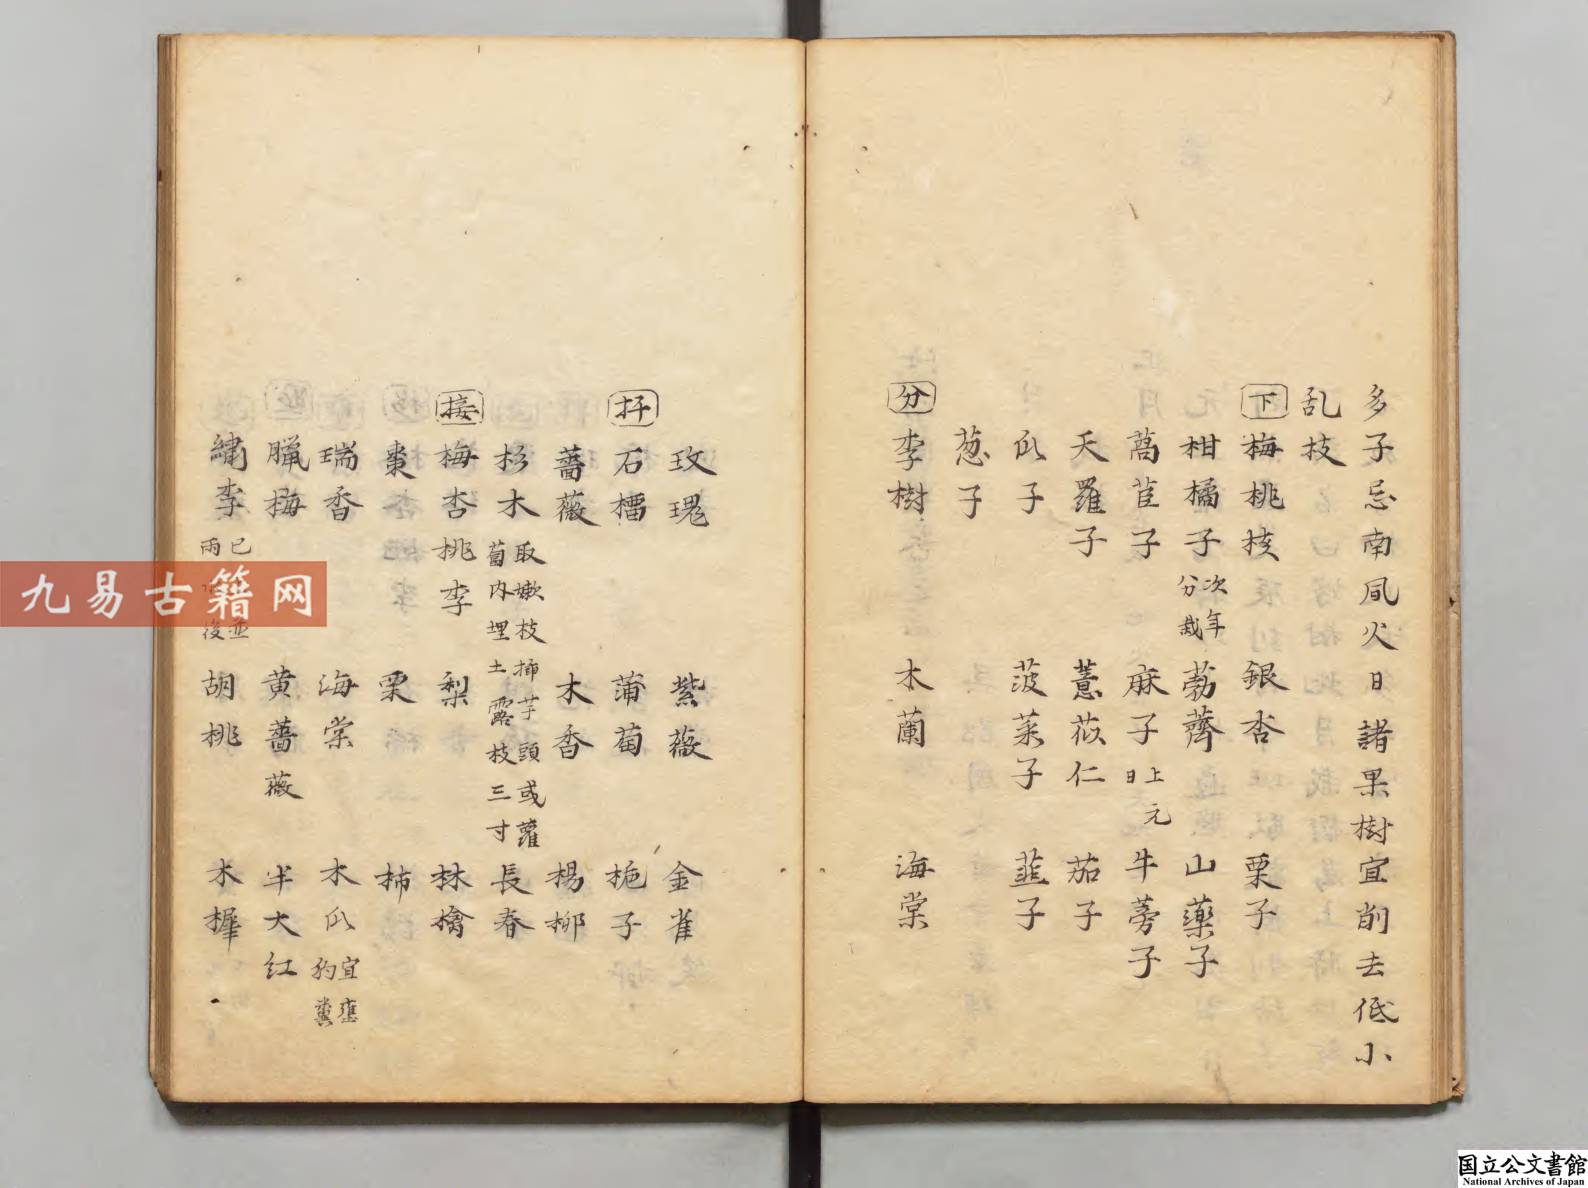 多子忌南風火日諸果樹宜削去低小
乱枝
下 梅桃核 銀杏 栗子
柑橘子 次年分栽 荸薺 山藥子
萵苣子 麻子 上元日 牛蒡子
天羅子 薏苡仁 茄子
瓜子 菠菜子 韮子
葱子
分 李樹 木蘭 海棠
玫瑰 紫薇 金雀
扦 石榴 蒲萄 梔子
薔薇 木香 楊柳
杉木 取嫩枝揷芋頭或蘿蔔内埋土露枝三寸 長春
接 梅杏桃李 梨 林檎
棗 栗 柿
瑞香 海棠 木瓜 宜壅狗糞
臘梅 黄薔薇 半大红
繡李 已並雨後 胡桃 木樨
九易古籍网
国立公文書館
National Archives of Japan